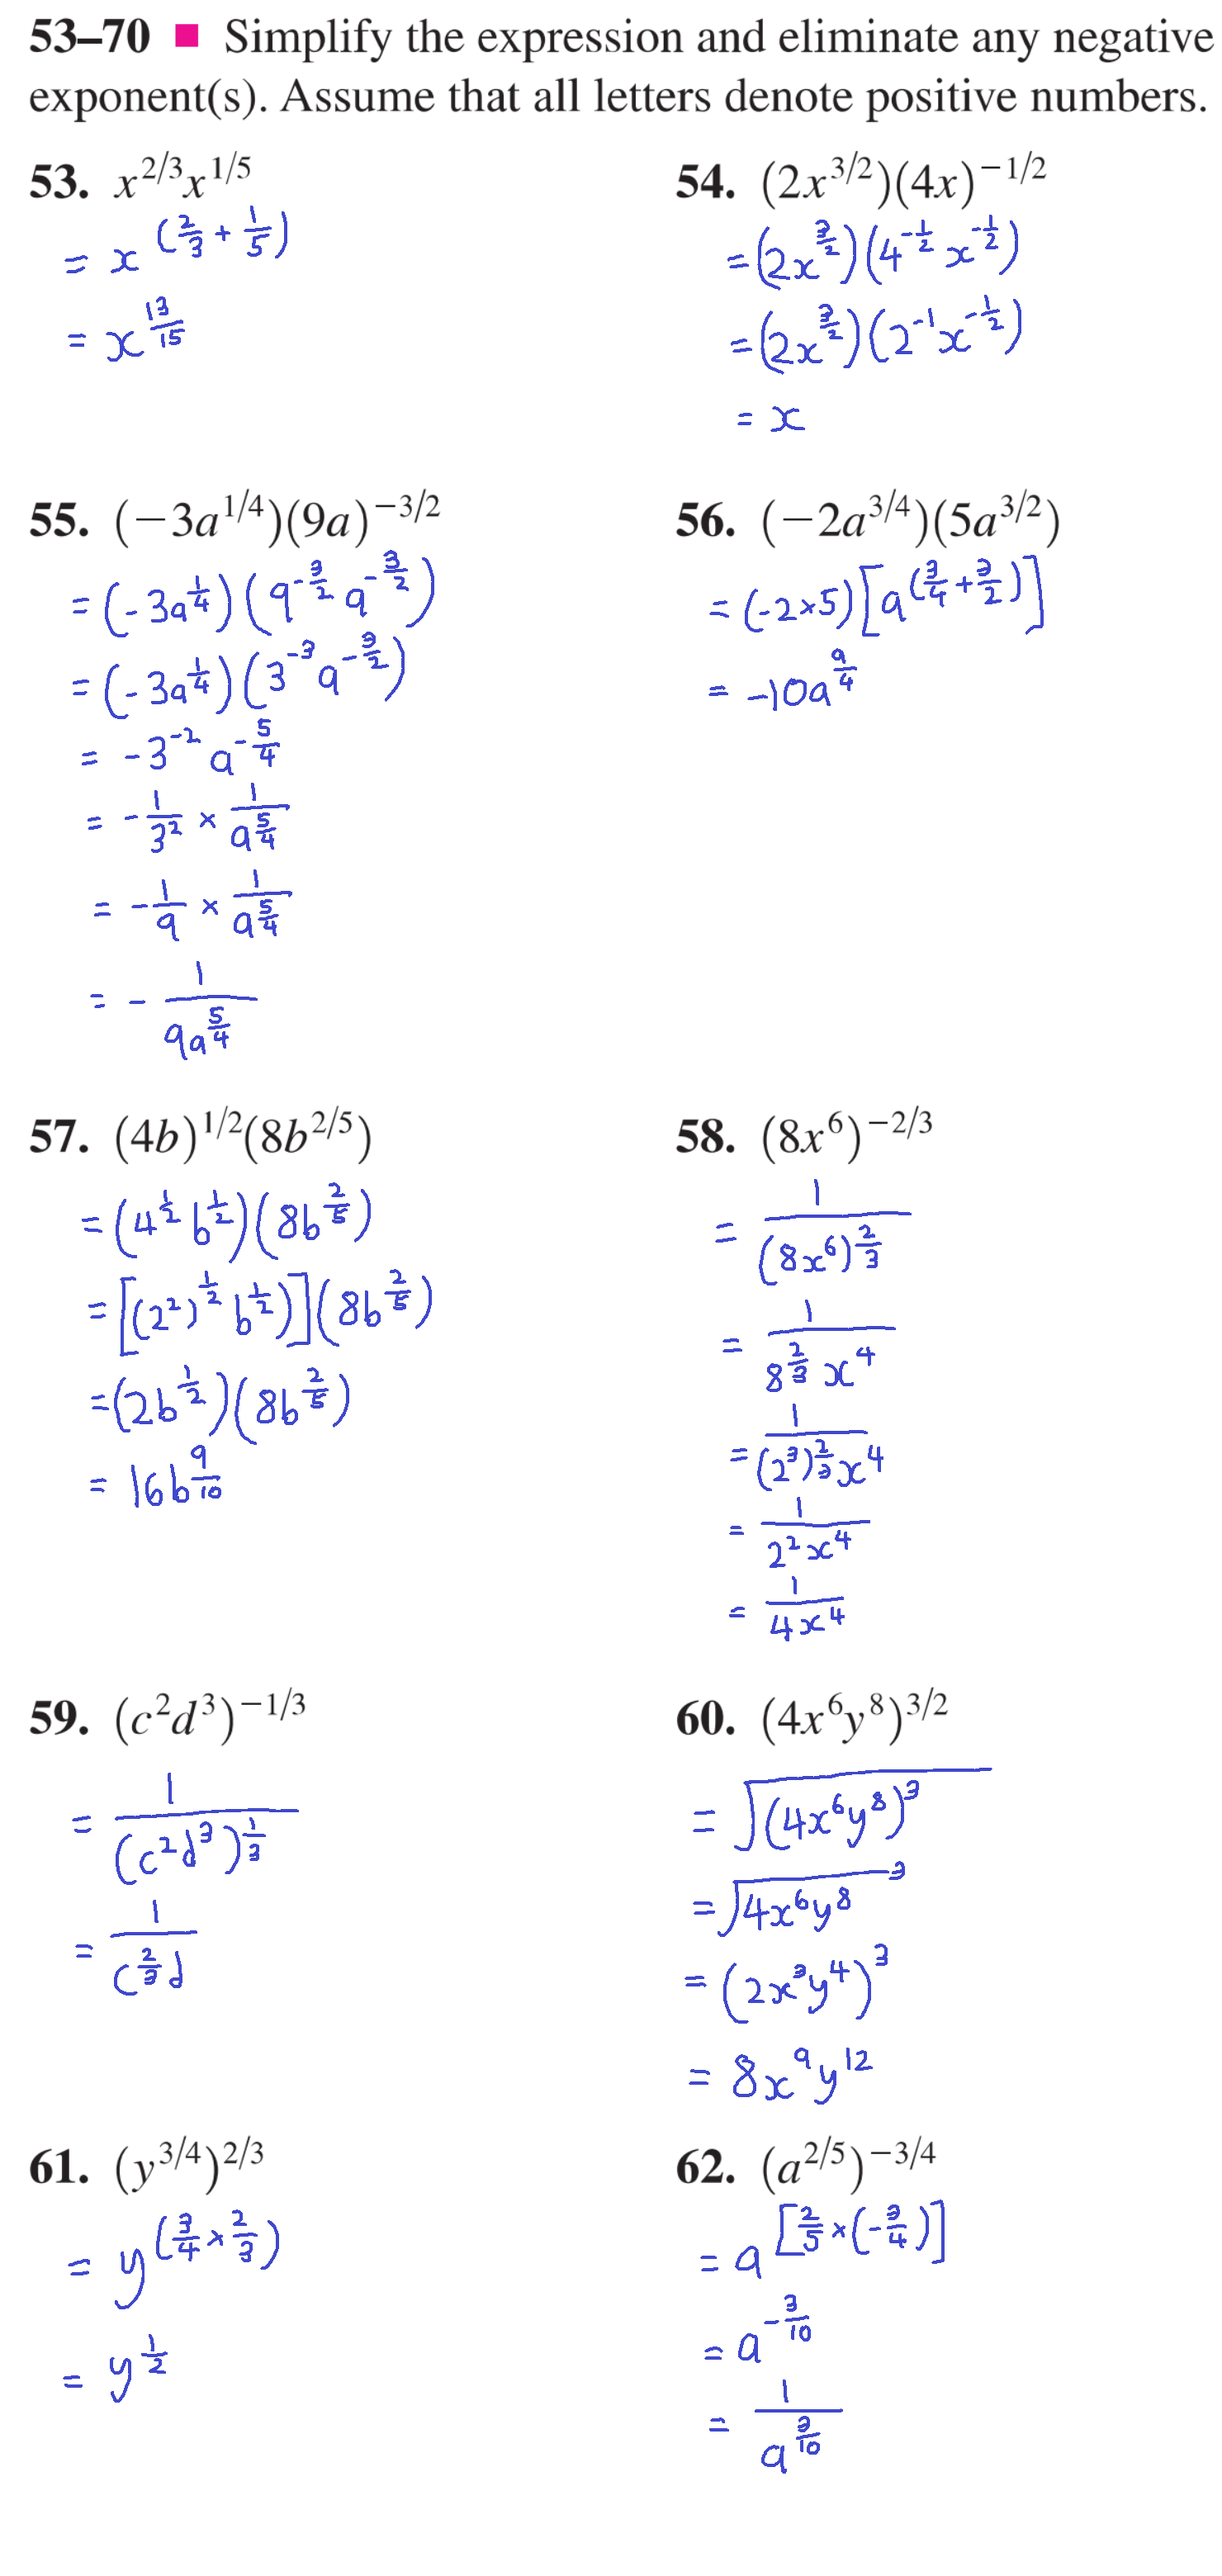 53–70 ■ Simplify the expression and eliminate any negative
exponent(s). Assume that all letters denote positive numbers.
53. x^{2/3}x^{1/5}
= x^{(2/3 + 1/5)}
= x^{13/15}
54. (2x^{3/2})(4x)^{−1/2}
= (2x^{3/2})(4^{-1/2} x^{-1/2})
= (2x^{3/2})(2^{-1} x^{-1/2})
= x
55. (−3a^{1/4})(9a)^{−3/2}
= (-3a^{1/4})(9^{-3/2} a^{-3/2})
= (-3a^{1/4})(3^{-3} a^{-3/2})
= -3^{-2} a^{-5/4}
= -1/3^2 × 1/a^{5/4}
= -1/9 × 1/a^{5/4}
= - 1/(9a^{5/4})
56. (−2a^{3/4})(5a^{3/2})
= (-2×5)[a^{(3/4 + 3/2)}]
= -10a^{9/4}
57. (4b)^{1/2}(8b^{2/5})
= (4^{1/2} b^{1/2})(8b^{2/5})
= [(2^2)^{1/2} b^{1/2})](8b^{2/5})
= (2b^{1/2})(8b^{2/5})
= 16b^{9/10}
58. (8x^6)^{−2/3}
= 1/(8x^6)^{2/3}
= 1/(8^{2/3} x^4)
= 1/((2^3)^{2/3} x^4)
= 1/(2^2 x^4)
= 1/(4x^4)
59. (c^2d^3)^{−1/3}
= 1/(c^2d^3)^{1/3}
= 1/(c^{2/3} d)
60. (4x^6y^8)^{3/2}
= √((4x^6y^8)^3)
= √(4x^6y^8)^3
= (2x^3y^4)^3
= 8x^9y^{12}
61. (y^{3/4})^{2/3}
= y^{(3/4 × 2/3)}
= y^{1/2}
62. (a^{2/5})^{−3/4}
= a^{[2/5 × (-3/4)]}
= a^{-3/10}
= 1/a^{3/10}